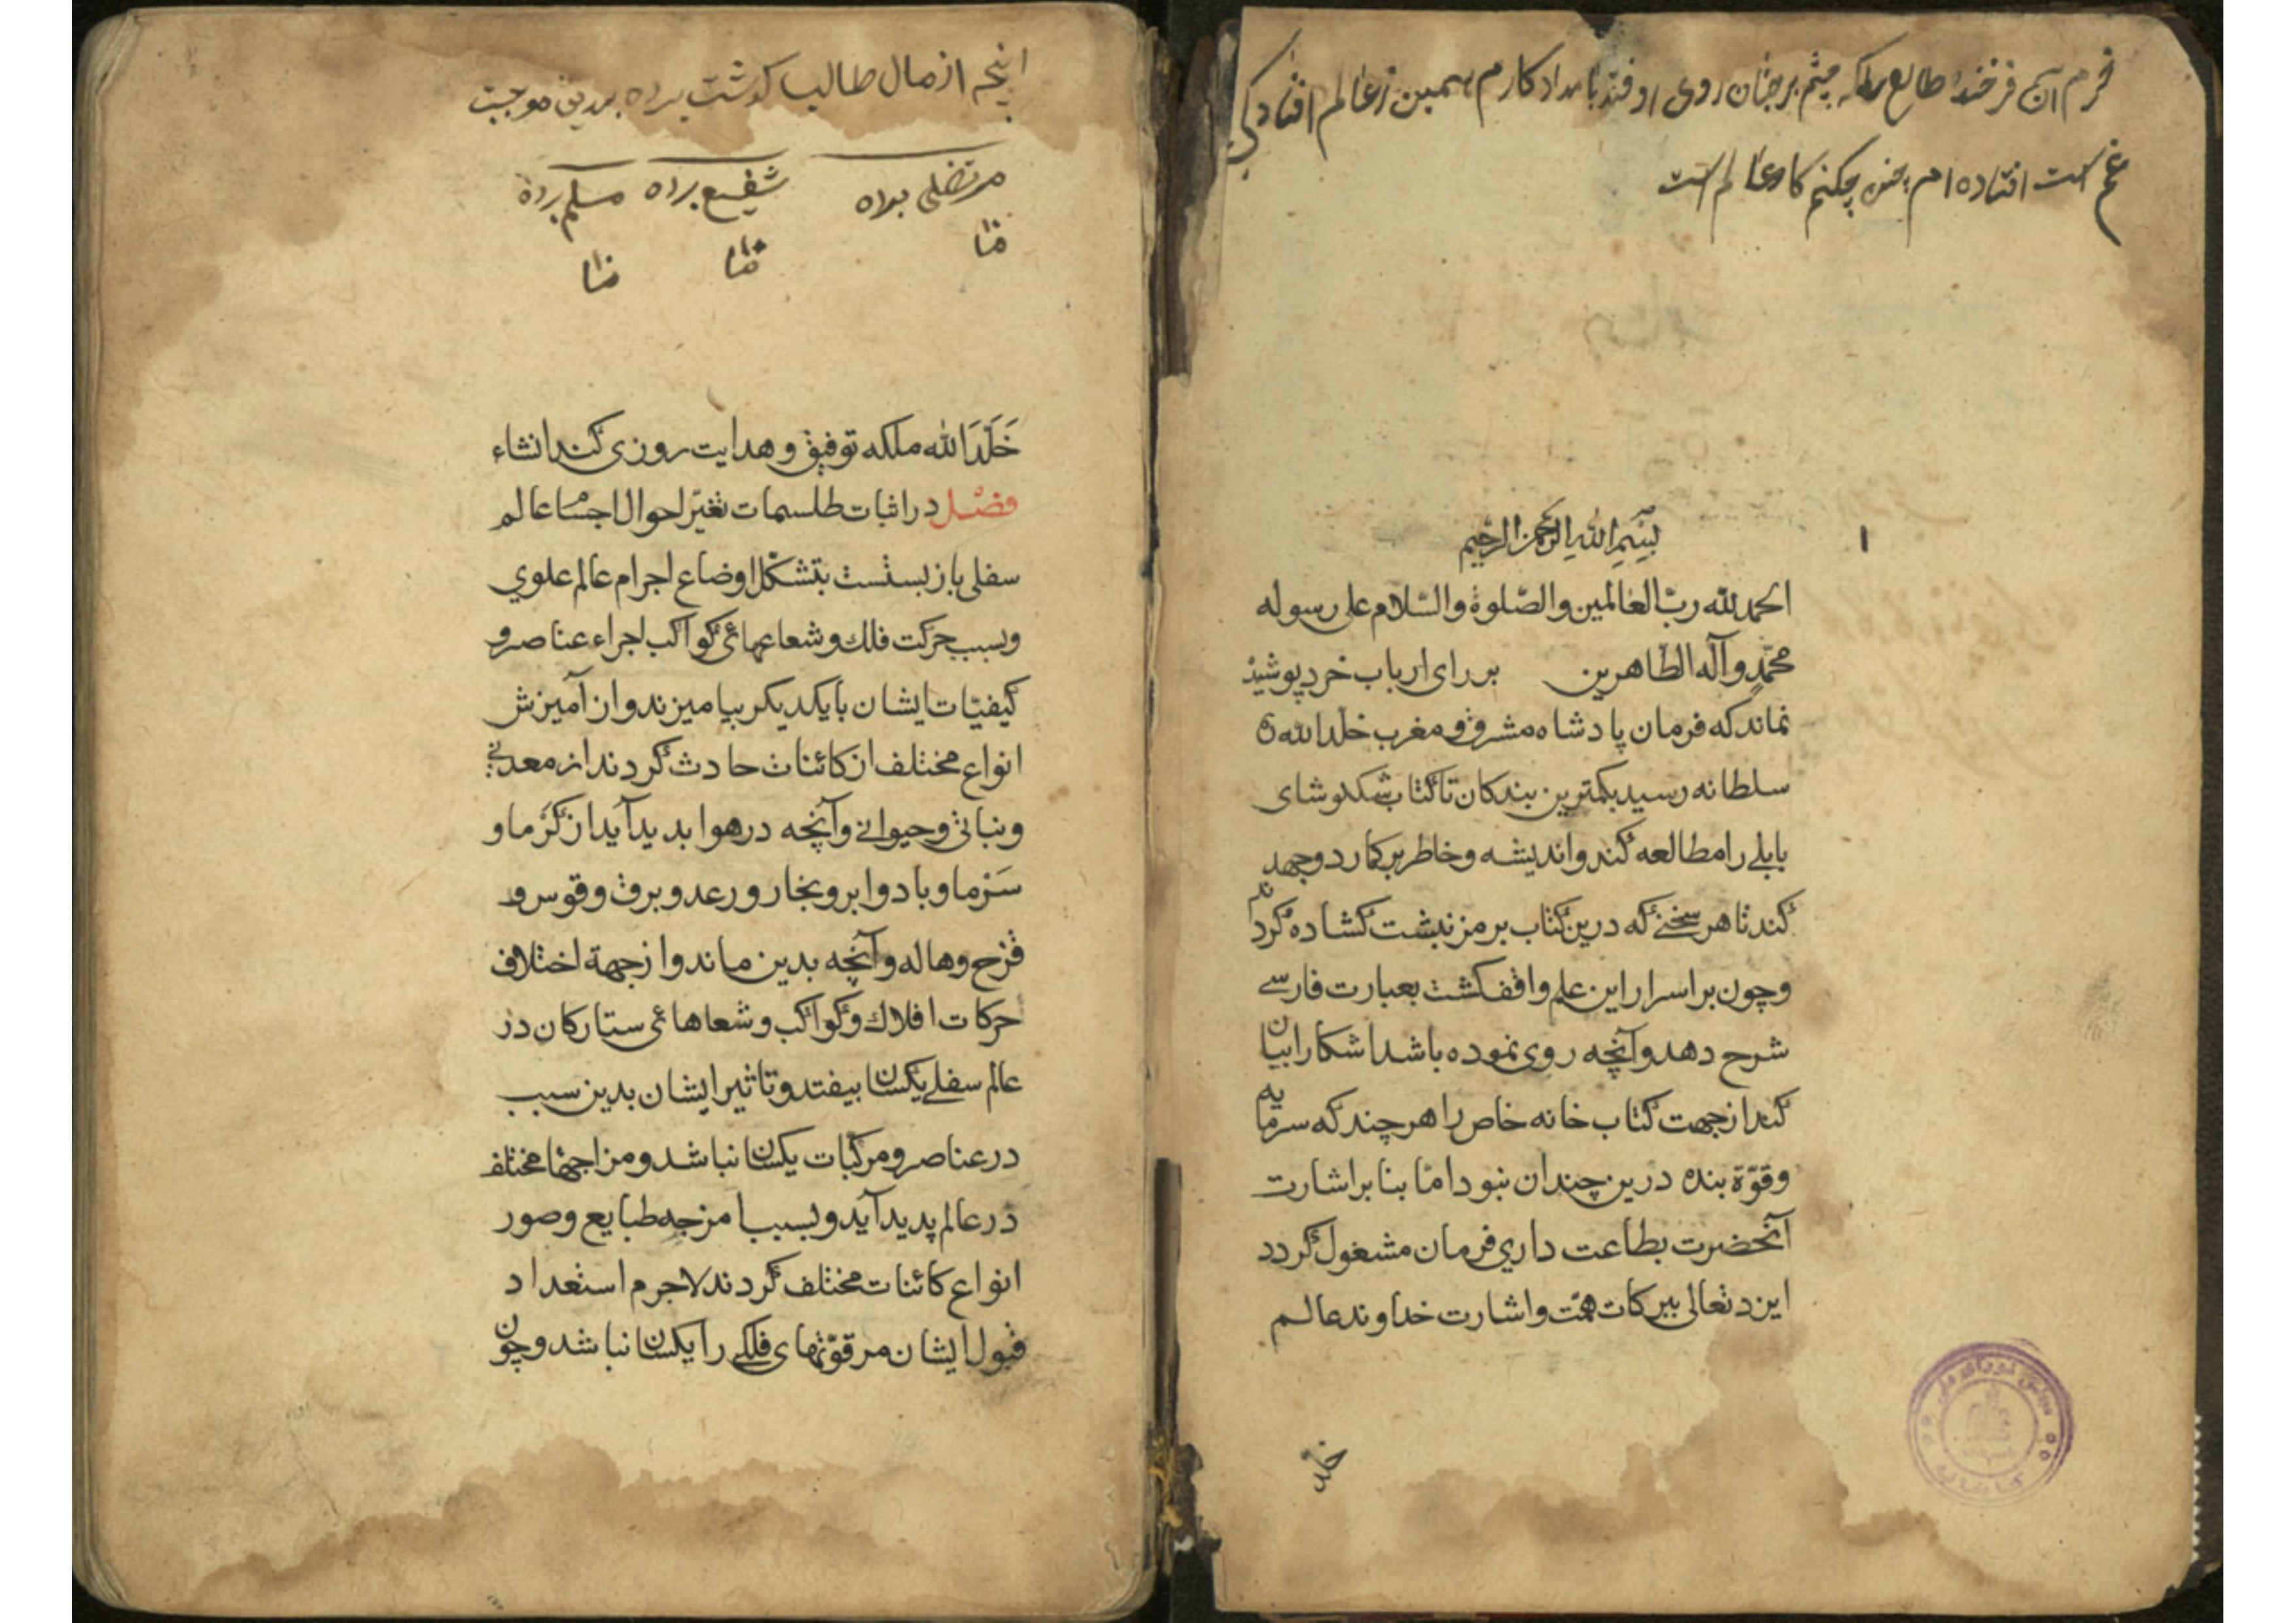 خرم آن فرخنده طالع را که چشم بر چنان روی اوفتد بامداد کارم همین ز عالم افتادگی
غم است افتاده ام چه چکنم کار عالم است
۱
بسم الله الرحمن الرحیم
الحمد لله ربّ العالمین والصّلوة والسّلام علی رسوله
محمّد وآله الطّاهرین بر رای ارباب خرد پوشیذ
نماند که فرمان پادشاه مشرق و مغرب خلد الله
سلطانه رسید بکمترین بندکان تا کتاب تنکلوشای
بابلی را مطالعه کند واندیشه وخاطر برکمارد وجهد
کند تا هر سخنے که درین کتاب برمز نبشت کشاده کردد
وچون بر اسرار این علم واقف کشت بعبارت فارسے
شرح دهد وآنچه روی نموده باشد اشکارا بیان
کند از جهت کتاب خانه خاص را هر چند که سرمایه
وقوّة بنده درین چندان نبود امّا بنا بر اشارت
آنحضرت بطاعت داری فرمان مشغول کردد
ایزد تعالی ببرکات همّت واشارت خداوند عالم
خلد
انچه از مال طالبا کوشت برده بدین موجبست
مرتضی برده شفیع برده مسلم برده
خَلَّدَ الله ملکه توفیق و هدایت روزی کند انشاء
فصل در اثبات طلسمات تغیّر احوال اجسام عالم
سفلی باز بستست بتشکّل اوضاع اجرام عالم علوی
وبسبب حرکت فلک و شعاعهائی کواکب اجراء عناصر و
کیفیّات ایشان بایکدیکر بیامیزند واز آمیزش
انواع مختلف از کائنات حادث کردند از معدنی
ونباتی وحیوانی وآنچه در هوا بدید آید از کَرما و
سَرما وباد وابر وبخار ورعد وبرق وقوس و
قزح وهاله وآنچه بدین ماند واز جهة اختلاف
حرکات افلاک وکواکب وشعاهائی ستارکان در
عالم سفلے یکسان بیفتد وتاثیر ایشان بدین سبب
در عناصر ومرکبات یکسان نباشد ومزاجها مختلف
در عالم پدید آید وبسبب امزجه طبایع وصور
انواع کائنات مختلف کردند لاجرم استعداد
قبول ایشان مر قوّتهای فلکے را یکسان نباشد وچون